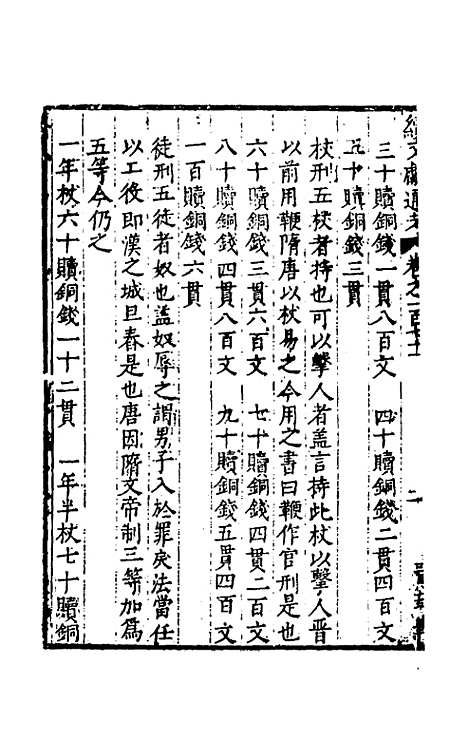 續文獻通考 卷之一百
三十贖銅錢一貫八百文 四十贖銅錢二貫四百文
五十贖銅錢三貫
杖刑五杖者持也可以擊人者盖言持此杖以擊人晋
以前用鞭隋唐以杖易之今用之書曰鞭作官刑是也
六十贖銅錢三貫六百文 七十贖銅錢四貫二百文
八十贖銅錢四貫八百文 九十贖銅錢五貫四百文
一百贖銅錢六貫
徒刑五徒者奴也盖奴辱之謂男子入於罪戾法當任
以工役即漢之城旦舂是也唐因隋文帝制三等加爲
五等今仍之
一年杖六十贖銅錢一十二貫 一年半杖七十贖銅